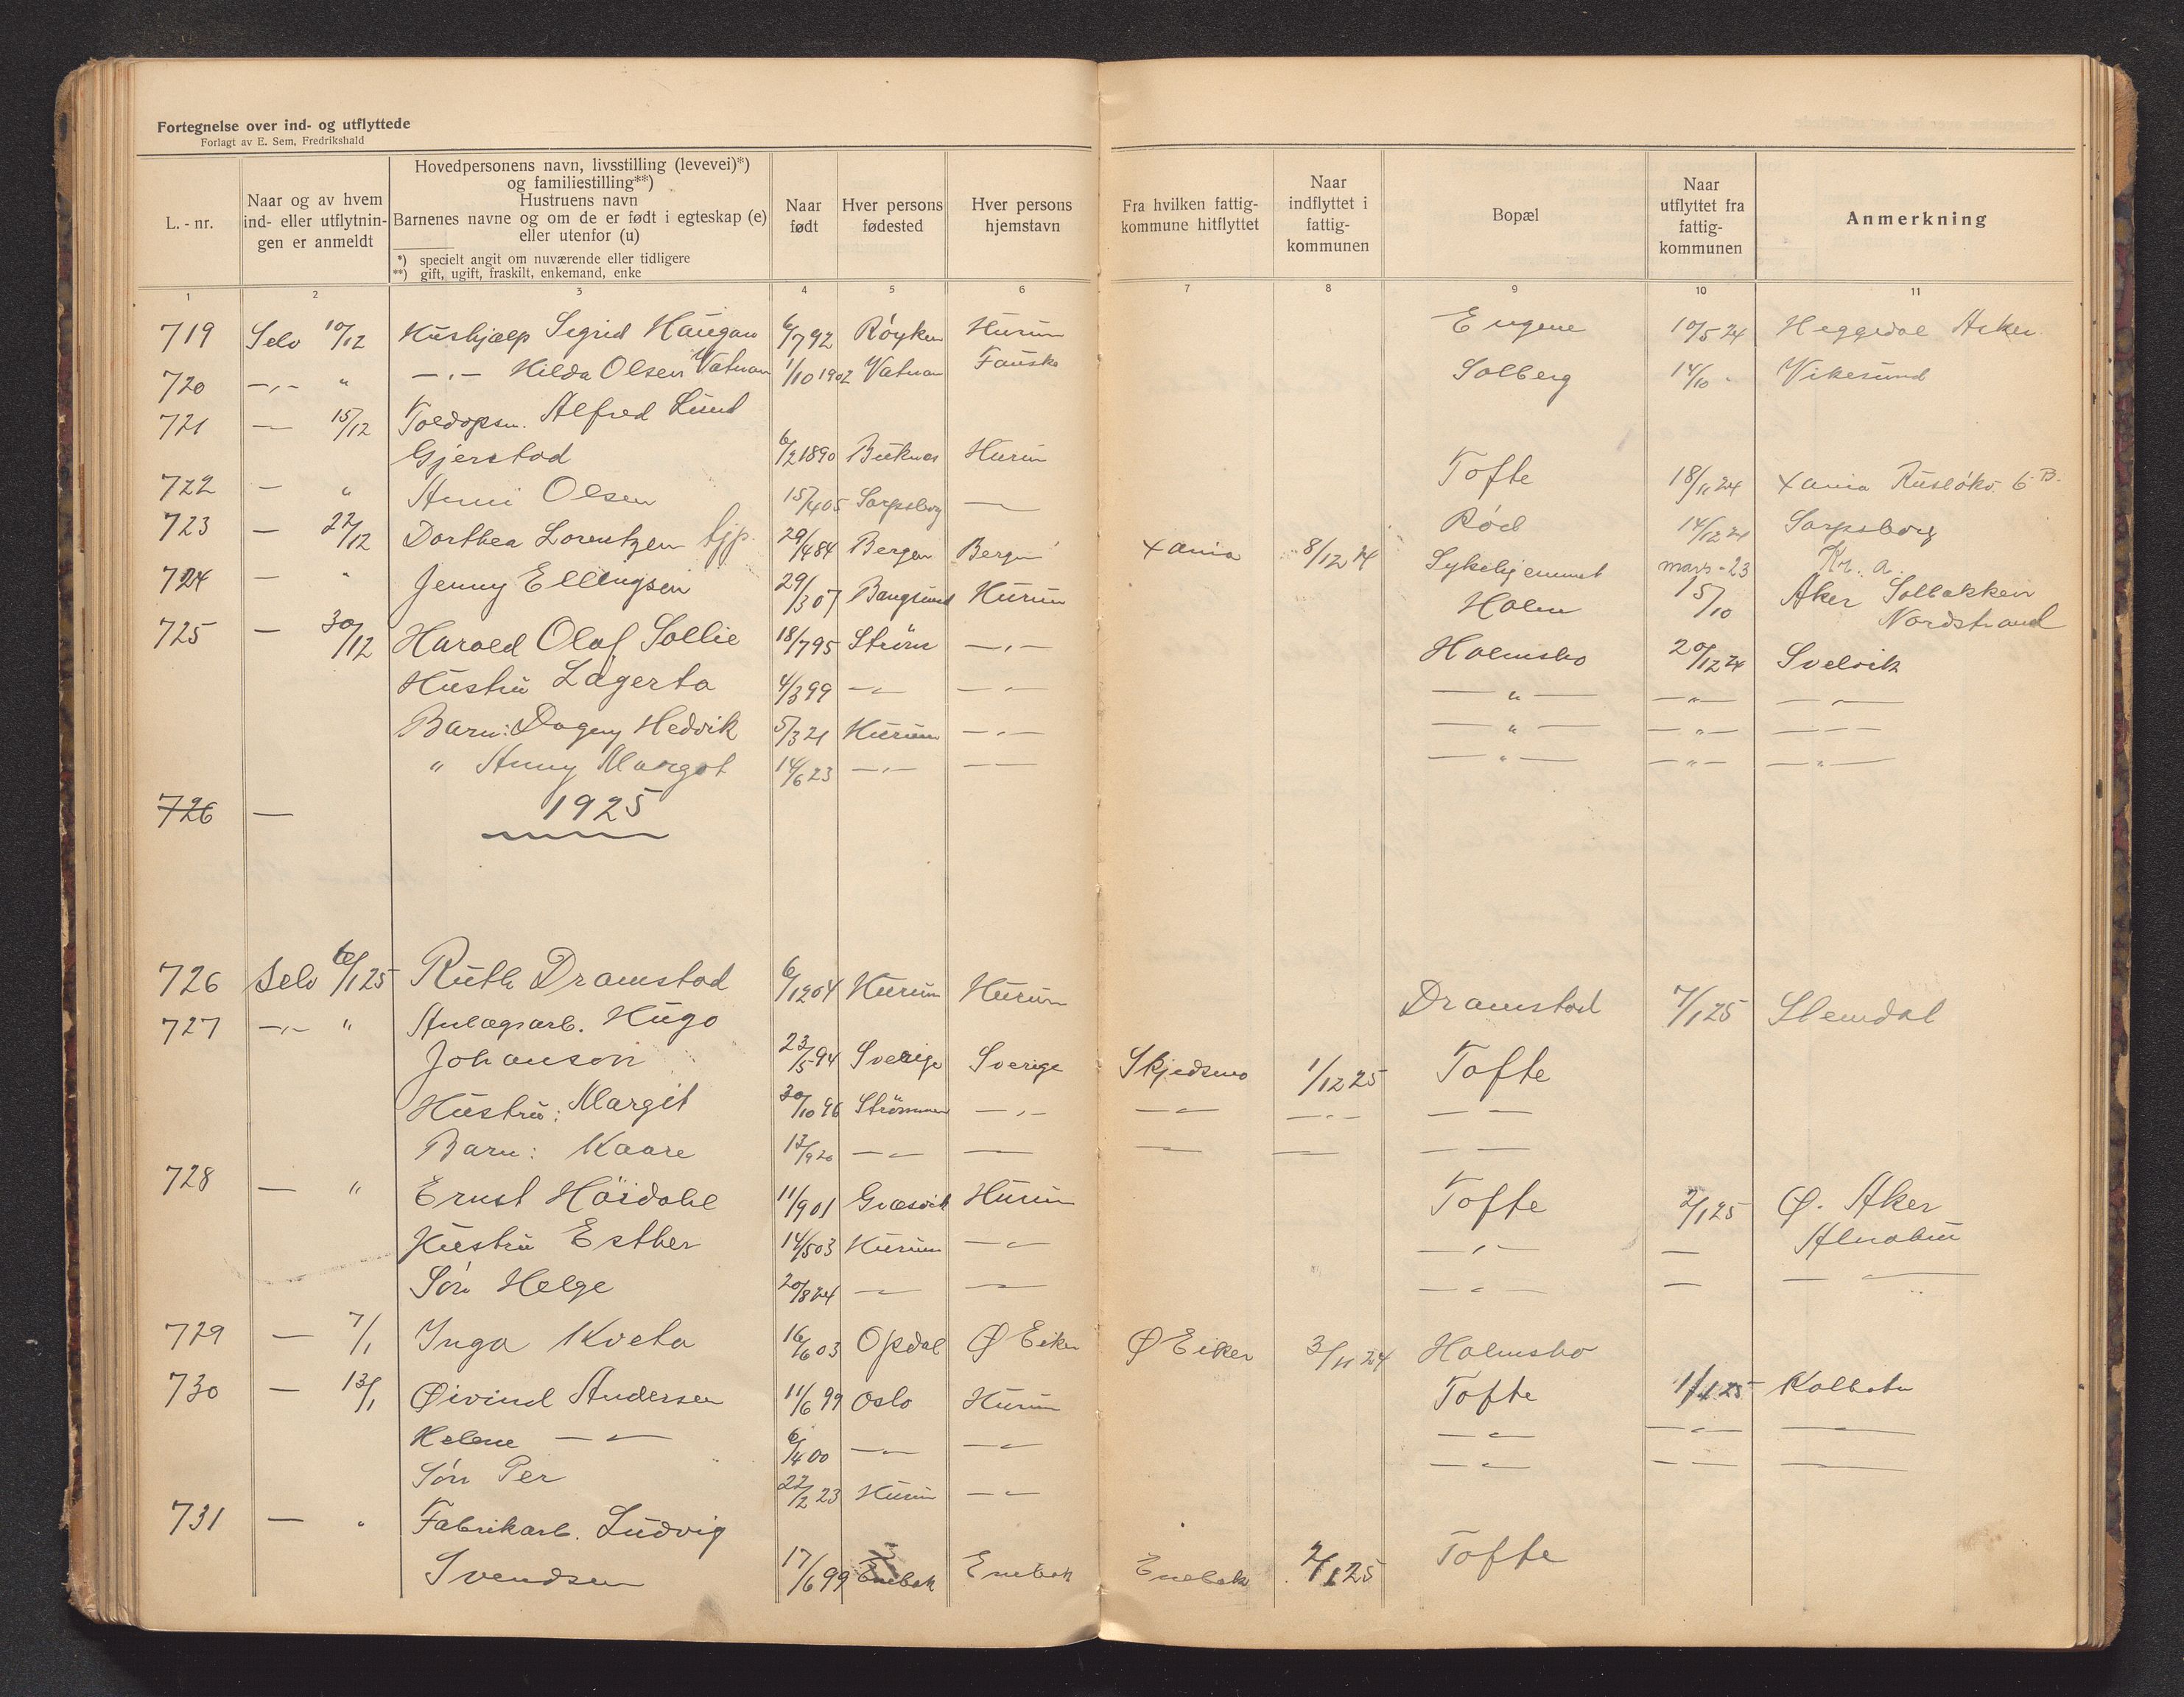 Fortegnelse over ind- og utflyttede
Forlagt av E. Sem, Fredrikshald
L. - nr.
Naar og av hvem ind- eller utflytnin- gen er anmeldt
Hovedpersonens navn, livsstilling (levevei)*)
og familiestilling**)
Hustruens navn
Barnenes navne og om de er født i egteskap (e)
eller utenfor (u)
*) specielt angit om nuværende eller tidligere
**) gift, ugift, fraskilt, enkemand, enke
Naar født
Hver persons fødested
Hver persons hjemstavn
Fra hvilken fattig- kommune hitflyttet
Naar indflyttet i fattig- kommunen
Bopæl
Naar utflyttet fra fattig- kommunen
Anmerkning
1 2 3 4 5 6 7 8 9 10 11
719 Selv 10/12 Hushjælp Sigrid Haugan 6/7 92 Røyken Hurum Engene 10/5 24 Heggedal Asker
720 -"- " -"- Hilda Olsen Vatnan 1/10 1902 Vatnan Fauske Solberg 14/10 - Vikesund
721 — 15/12 Toldopsn. Alfred Lund
Gjerstad 6/2 1890 Hurum Tofte 18/11 24 Xania Ruseløkv. 6 B.
722 — " Anni Olsen 15/4 05 Sarpsborg — Rød 14/12 24 Sarpsborg
723 — 22/12 Dorthea Lorentzen hjp. 29/4 84 Bergen Bergen Xania 8/12 24 Sykehjemmet mars - 23 Kr. a.
724 — " Jenny Ellingsen 29/3 07 Bangsund Hurum Holm 15/10 Aker Solbakken
Nordstrand
725 — 30/12 Harald Olaf Sollie 18/7 95 Strøm -"- Holmsbo 20/12 24 Svelvik
Hustru Lagerta 4/3 99 -"- -"- -"- -"- -"-
Barn: Dagny Hedvik 5/3 21 Hurum -"- -"- -"- — — —
" Anny Margot 14/6 23 -"- — — -"- -"- -"-
726 — 1925
726 Selv 6/1 25 Ruth Dramstad 6/12 04 Hurum Hurum Dramstad 7/1 25 Slemdal
727 -"- " Anlægsarb. Hugo
Johanson 23/5 94 Sverige Sverige Skjedsmo 1/12 25 Tofte
Hustru: Margit 30/10 96 Strømmen -"- -"- -"- — —
Barn: Kaare 13/9 20 -"- — — — — —
728 — " Ernst Höidahl 11/9 01 Græsvik Hurum Tofte 2/1 25 Ø. Aker
Hustru Esther 14/5 03 Hurum -"- -"- — Alnabru
Søn Helge 20/8 24 -"- — -"- — — —
729 — 7/1 Inga Kveta 16/6 03 Opdal Ø Eiker Ø Eiker 3/11 24 Holmsbo
730 — 13/1 Øivind Andersen 11/6 99 Oslo Hurum Tofte 1/1 25 Kolbotn
Helene -"- 6/4 00 -"- -"- -"- -"- —
Søn Per 22/2 23 Hurum -"- -"- — — —
731 — " Fabrikarb. Ludvig
Svendsen 17/6 99 Enebak Enebak Enebak 2/1 25 Tofte